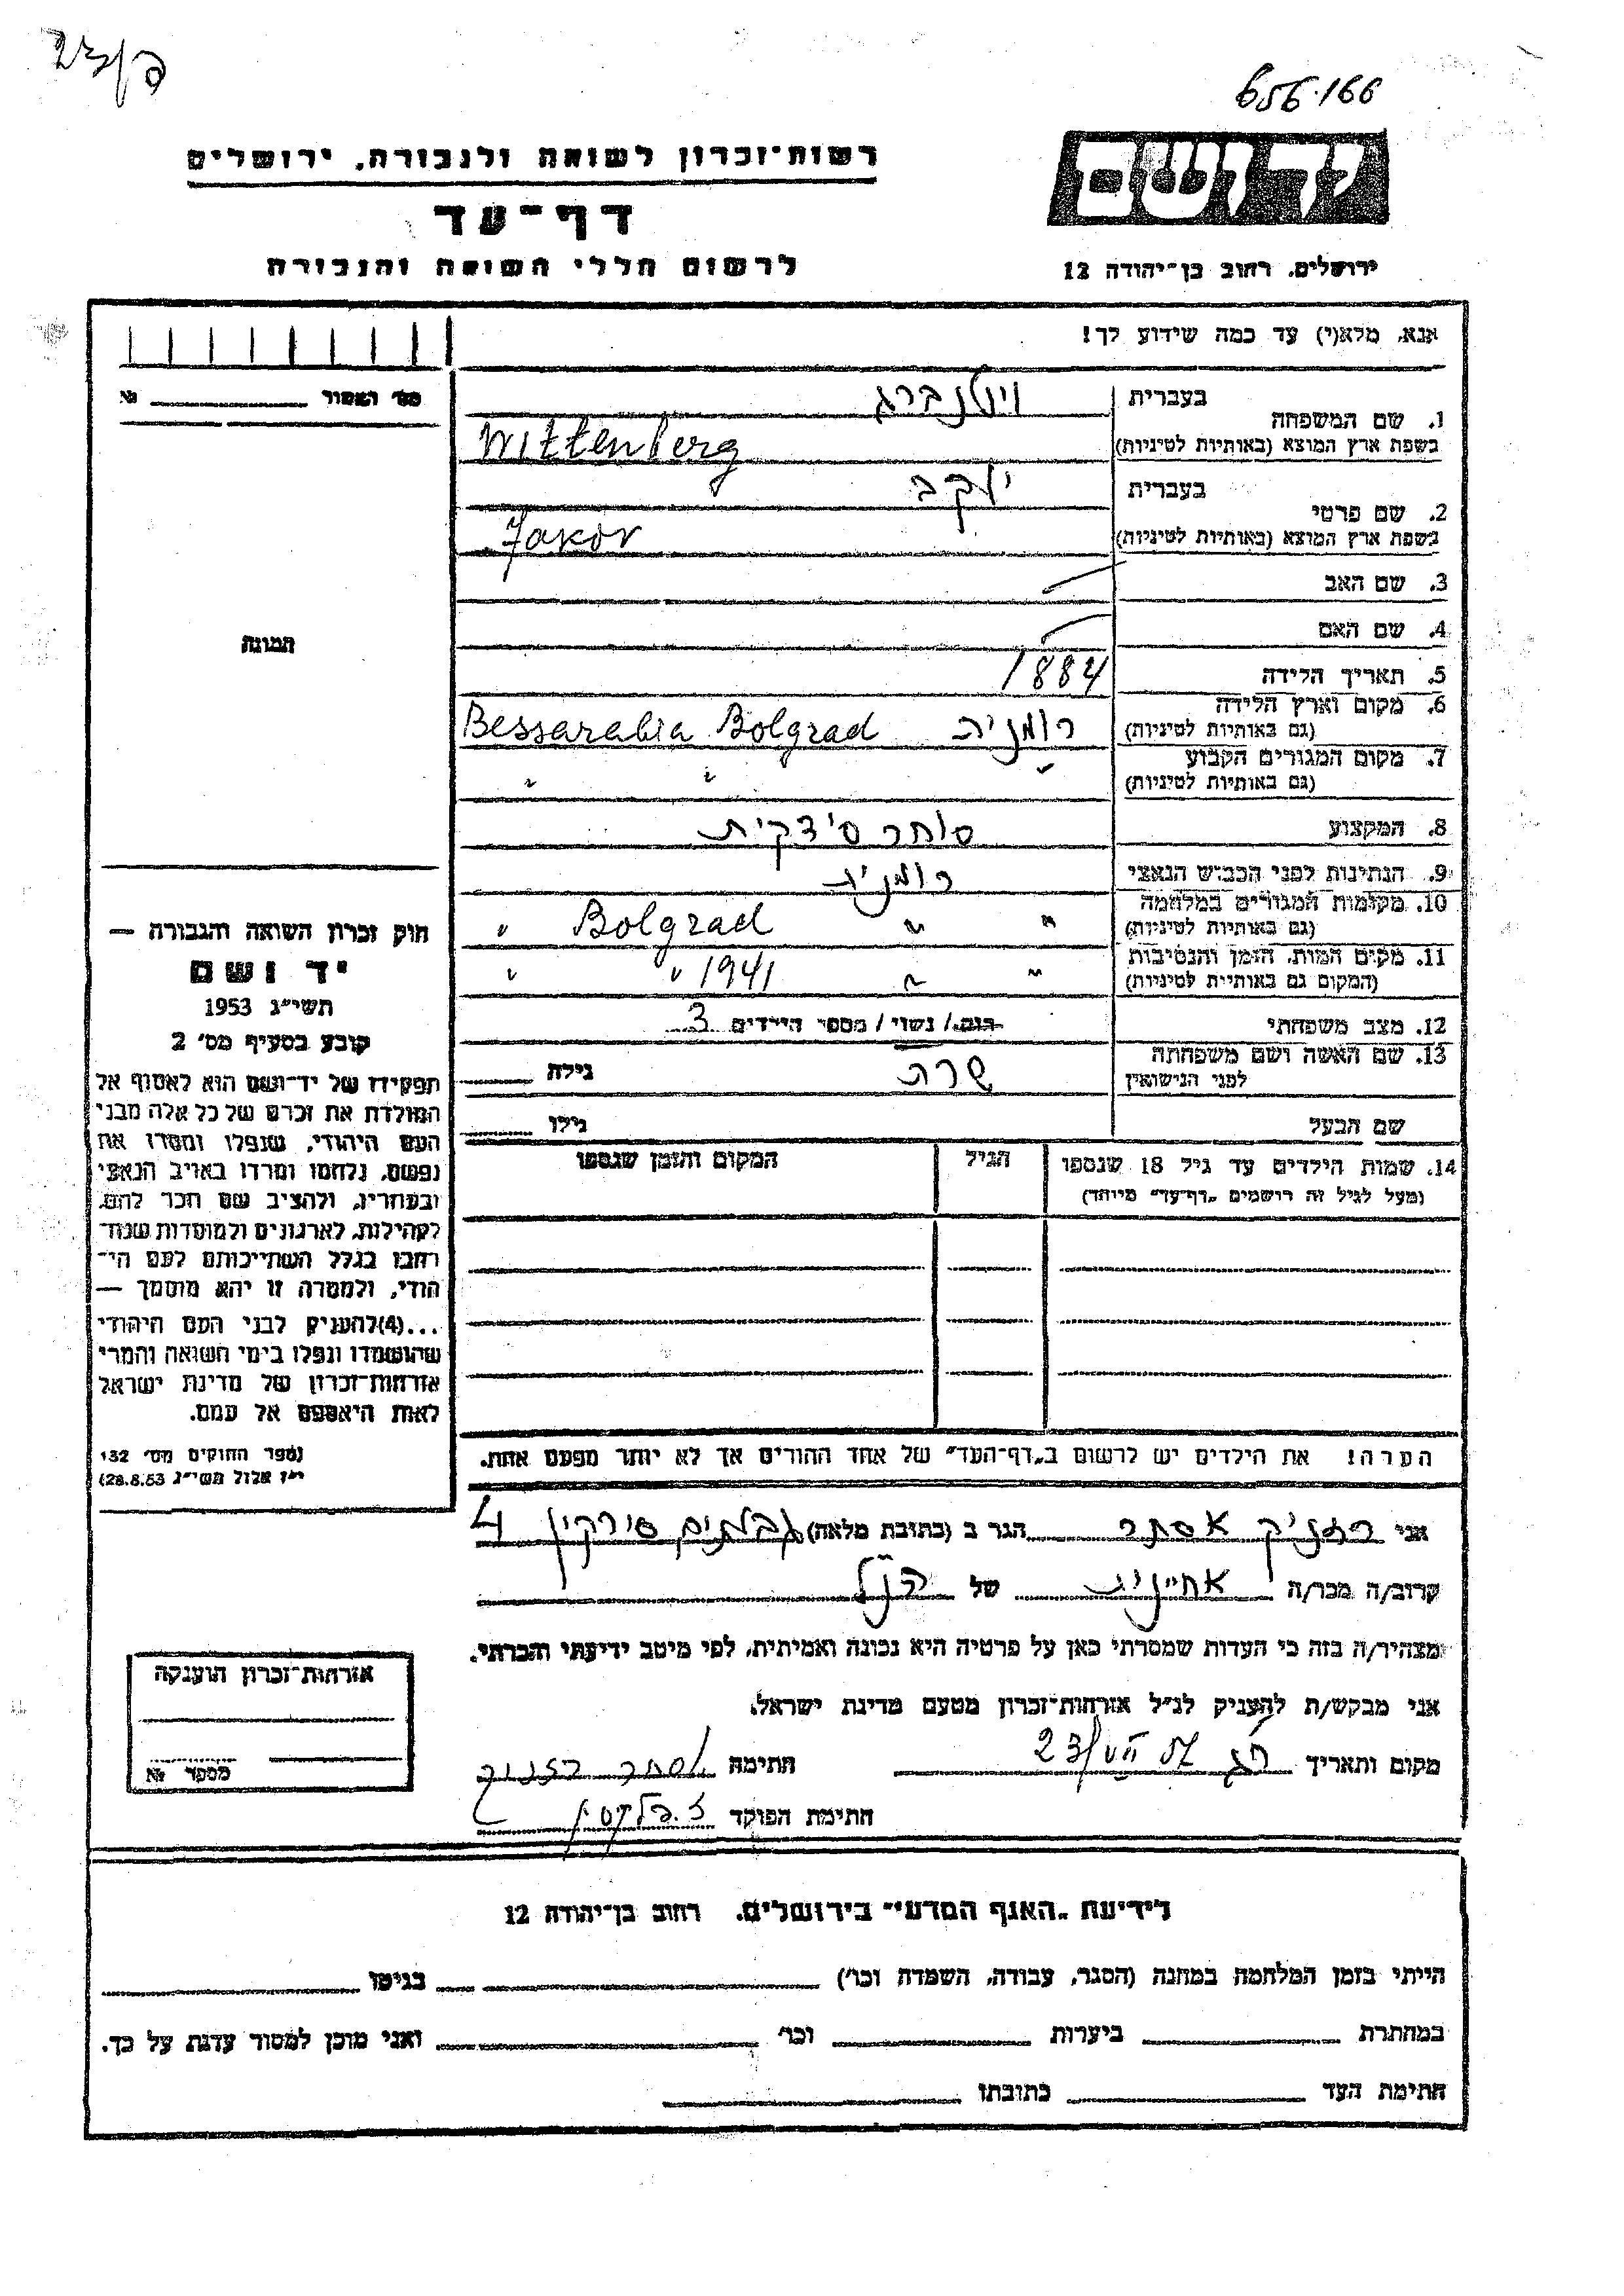 656.166
יד ושם
רשות־זכרון לשואה ולגבורה, ירושלים
דף־עד
לרשום חללי השואה והגבורה
ירושלים, רחוב בן־יהודה 12
אנא, מלא(י) עד כמה שידוע לך!
מס' האסור № ____
1. שם המשפחה
בעברית ויטנברג
בשפת ארץ המוצא (באותיות לטיניות) Wittenberg
2. שם פרטי
בעברית יעקב
בשפת ארץ המוצא (באותיות לטיניות) Jakov
3. שם האב
4. שם האם
5. תאריך הלידה 1884
6. מקום וארץ הלידה
(גם באותיות לטיניות) רומניה Bessarabia Bolgrad
7. מקום המגורים הקבוע
(גם באותיות לטיניות) " " "
8. המקצוע סוחר סידקית
9. הנתינות לפני הכבוש הנאצי רומניה
10. מקומות המגורים במלחמה
(גם באותיות לטיניות) " " Bolgrad "
11. מקום המות, הזמן והנסיבות
(המקום גם באותיות לטיניות) " " 1941 " "
12. מצב משפחתי רווק / נשוי / מספר הילדים 3
13. שם האשה ושם משפחתה
לפני הנישואין שרה גילה
שם הבעל גילו
14. שמות הילדים עד גיל 18 שנספו
(מעל לגיל זה רושמים "דף־עד" מיוחד)
הגיל
המקום והזמן שנספו
הערה! את הילדים יש לרשום ב"דף־העד" של אחד ההורים אך לא יותר מפעם אחת.
תמונה
חוק זכרון השואה והגבורה —
יד ושם
תשי"ג 1953
קובע בסעיף מס' 2
תפקידו של יד־ושם הוא לאסוף אל
המולדת את זכרם של כל אלה מבני
העם היהודי, שנפלו ומסרו את
נפשם, נלחמו ומרדו באויב הנאצי
ובעוזריו, ולהציב שם וזכר להם,
לקהילות, לארגונים ולמוסדות שנח־
רבו בגלל השתייכותם לעם הי־
הודי, ולמטרה זו יהא מוסמך —
...(4) להעניק לבני העם היהודי
שהושמדו ונפלו בימי השואה והמרי
אזרחות־זכרון של מדינת ישראל
לאות היאספם אל עמם.
(ספר החוקים מס' 132
י"ז אלול תשי"ג 28.8.53)
אני רזניק אסתר הגר ב (כתובת מלאה) גבעתיים סירקין 4
קרוב/ה מכר/ה אחיינית של הנ"ל
מצהיר/ה בזה כי העדות שמסרתי כאן על פרטיה היא נכונה ואמיתית, לפי מיטב ידיעתי והכרתי.
אני מבקש/ת להעניק לנ"ל אזרחות־זכרון מטעם מדינת ישראל.
מקום ותאריך 23/VII חתימה אסתר רזניק
חתימת הפוקד
אזרחות־זכרון הוענקה
מספר №
לידיעת "האגף המדעי" בירושלים, רחוב בן־יהודה 12
הייתי בזמן המלחמה במחנה (הסגר, עבודה, השמדה וכו') בגיטו
במחתרת ביערות וכו' ואני מוכן למסור עדות על כך.
חתימת העד כתובתו